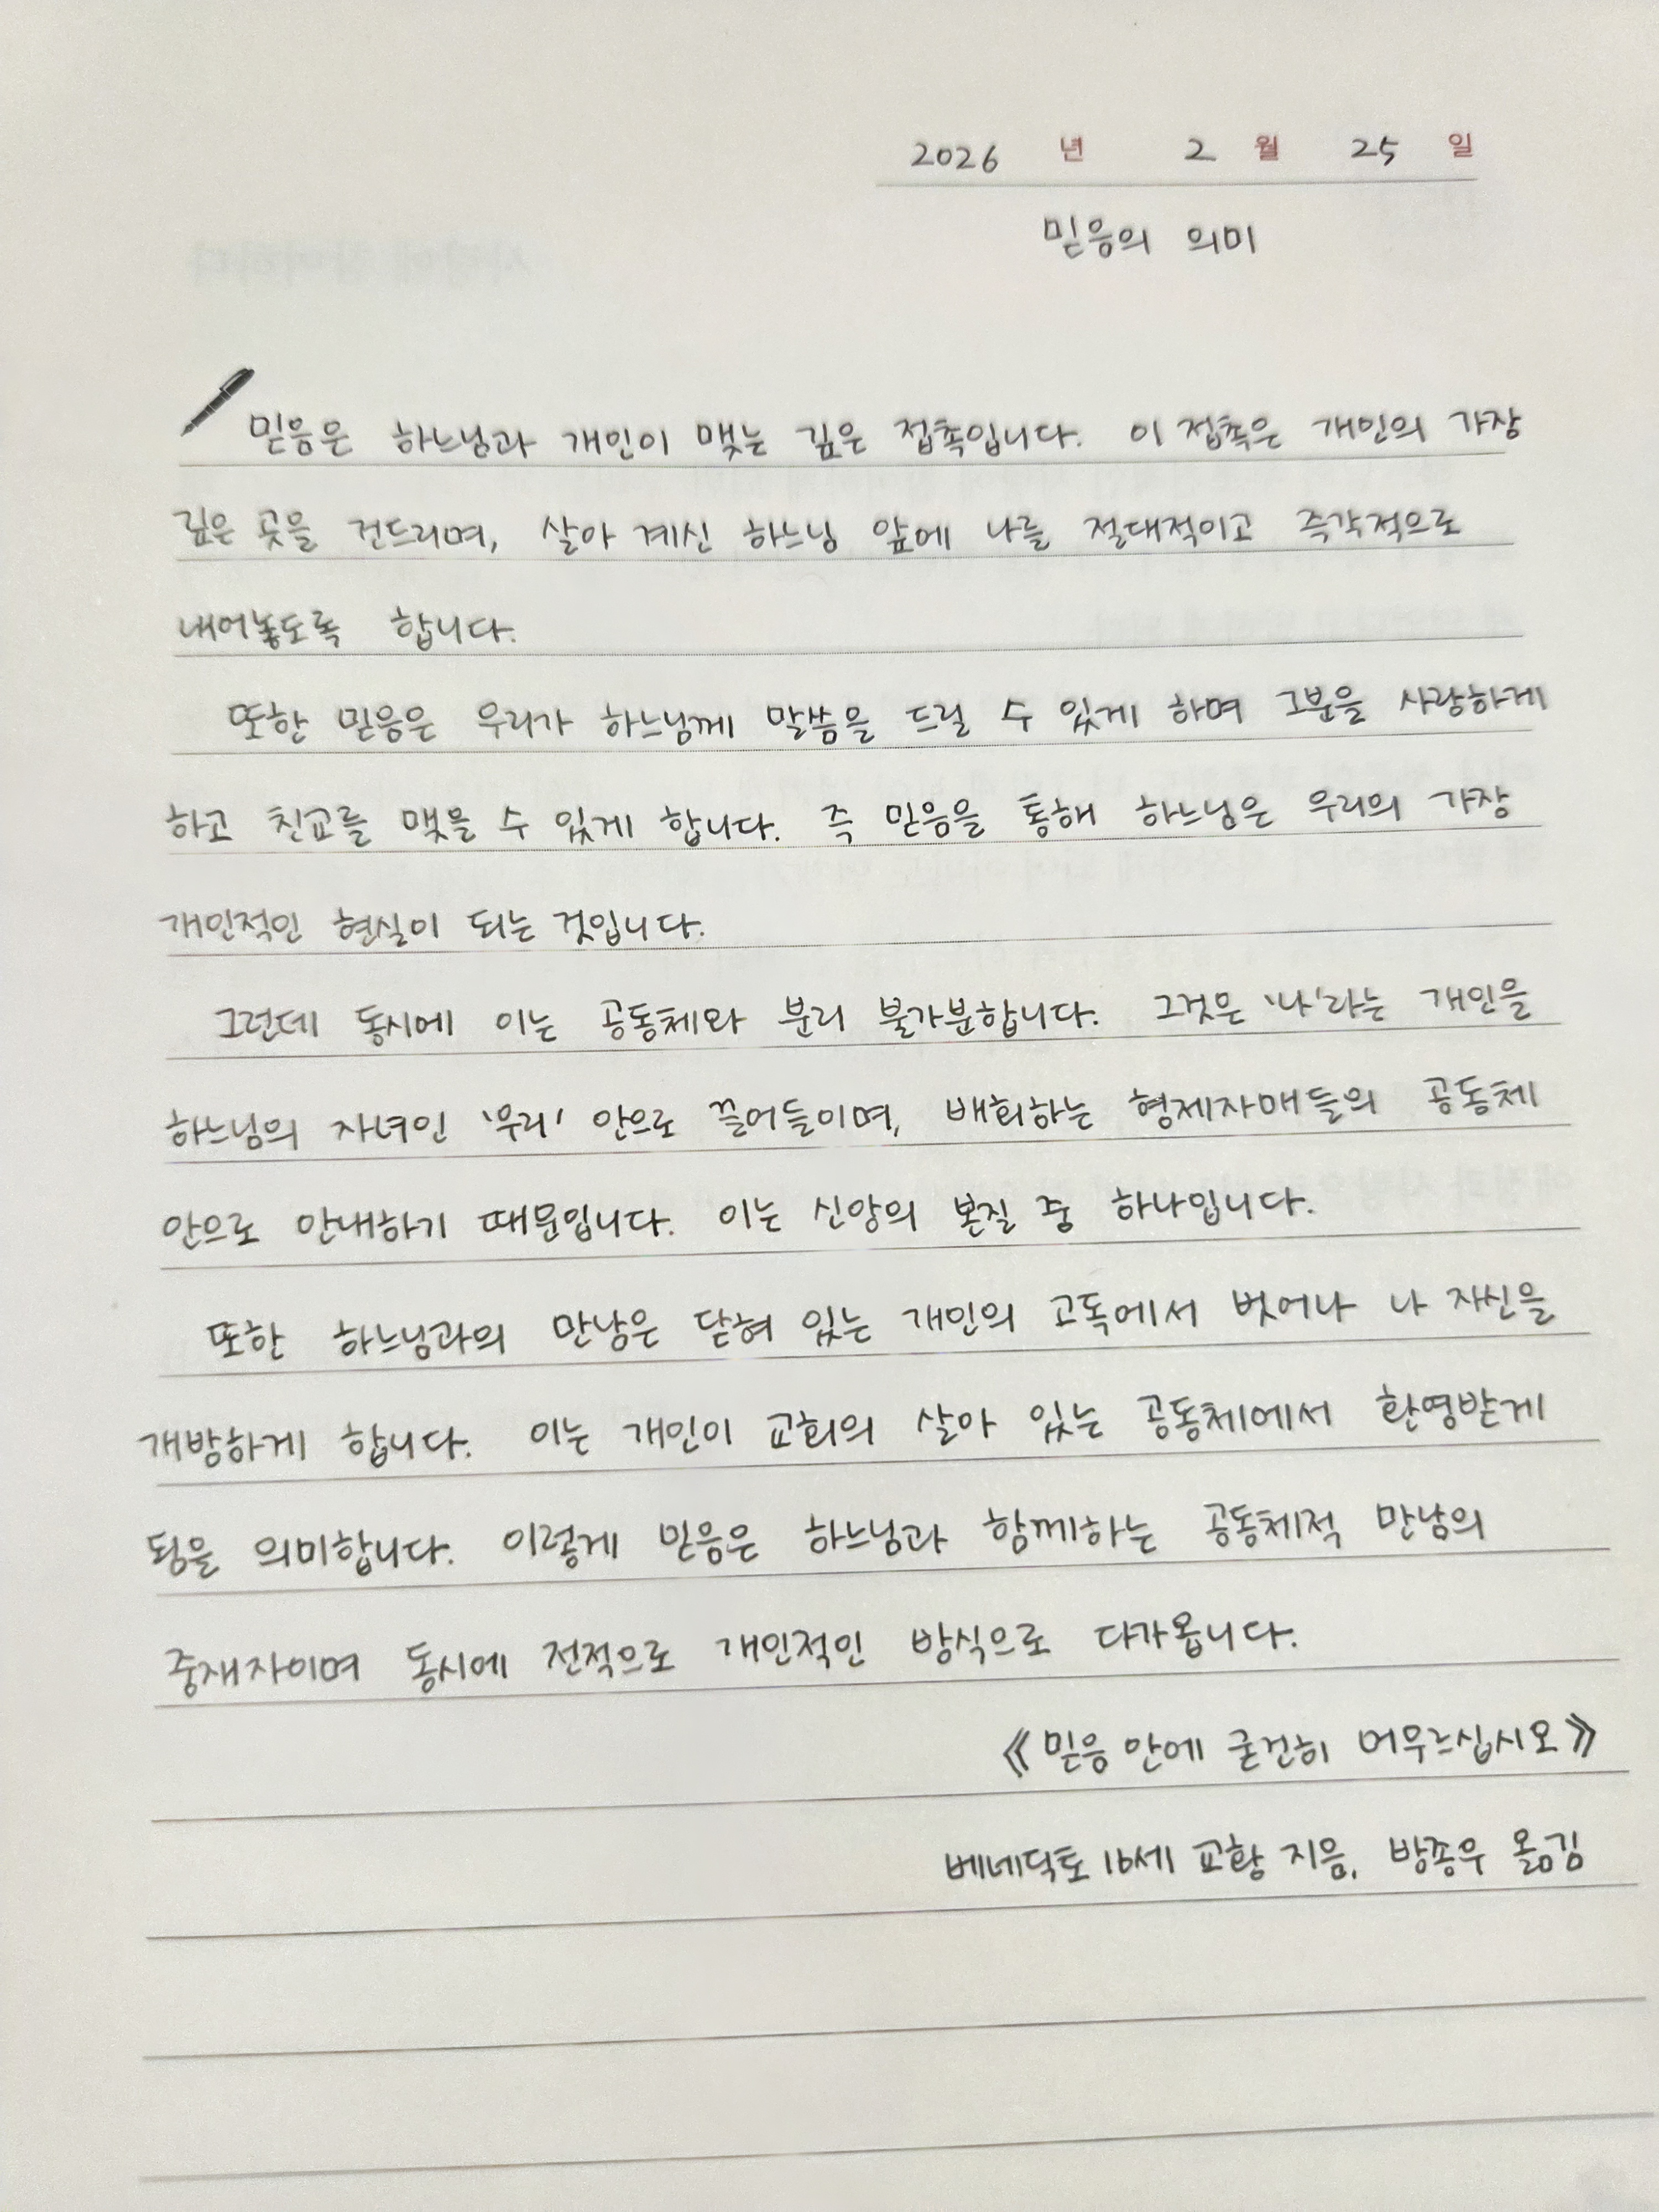 2026 년 2 월 25 일
믿음의 의미
믿음은 하느님과 개인이 맺는 깊은 접촉입니다. 이 접촉은 개인의 가장
깊은 곳을 건드리며, 살아 계신 하느님 앞에 나를 절대적이고 즉각적으로
내어놓도록 합니다.
또한 믿음은 우리가 하느님께 말씀을 드릴 수 있게 하며 그분을 사랑하게
하고 친교를 맺을 수 있게 합니다. 즉 믿음을 통해 하느님은 우리의 가장
개인적인 현실이 되는 것입니다.
그런데 동시에 이는 공동체와 분리 불가분합니다. 그것은 '나'라는 개인을
하느님의 자녀인 '우리' 안으로 끌어들이며, 배회하는 형제자매들의 공동체
안으로 안내하기 때문입니다. 이는 신앙의 본질 중 하나입니다.
또한 하느님과의 만남은 닫혀 있는 개인의 고독에서 벗어나 나 자신을
개방하게 합니다. 이는 개인이 교회의 살아 있는 공동체에서 환영받게
됨을 의미합니다. 이렇게 믿음은 하느님과 함께하는 공동체적 만남의
중재자이며 동시에 전적으로 개인적인 방식으로 다가옵니다.
《믿음 안에 굳건히 머무르십시오》
베네딕토 16세 교황 지음, 방종우 옮김